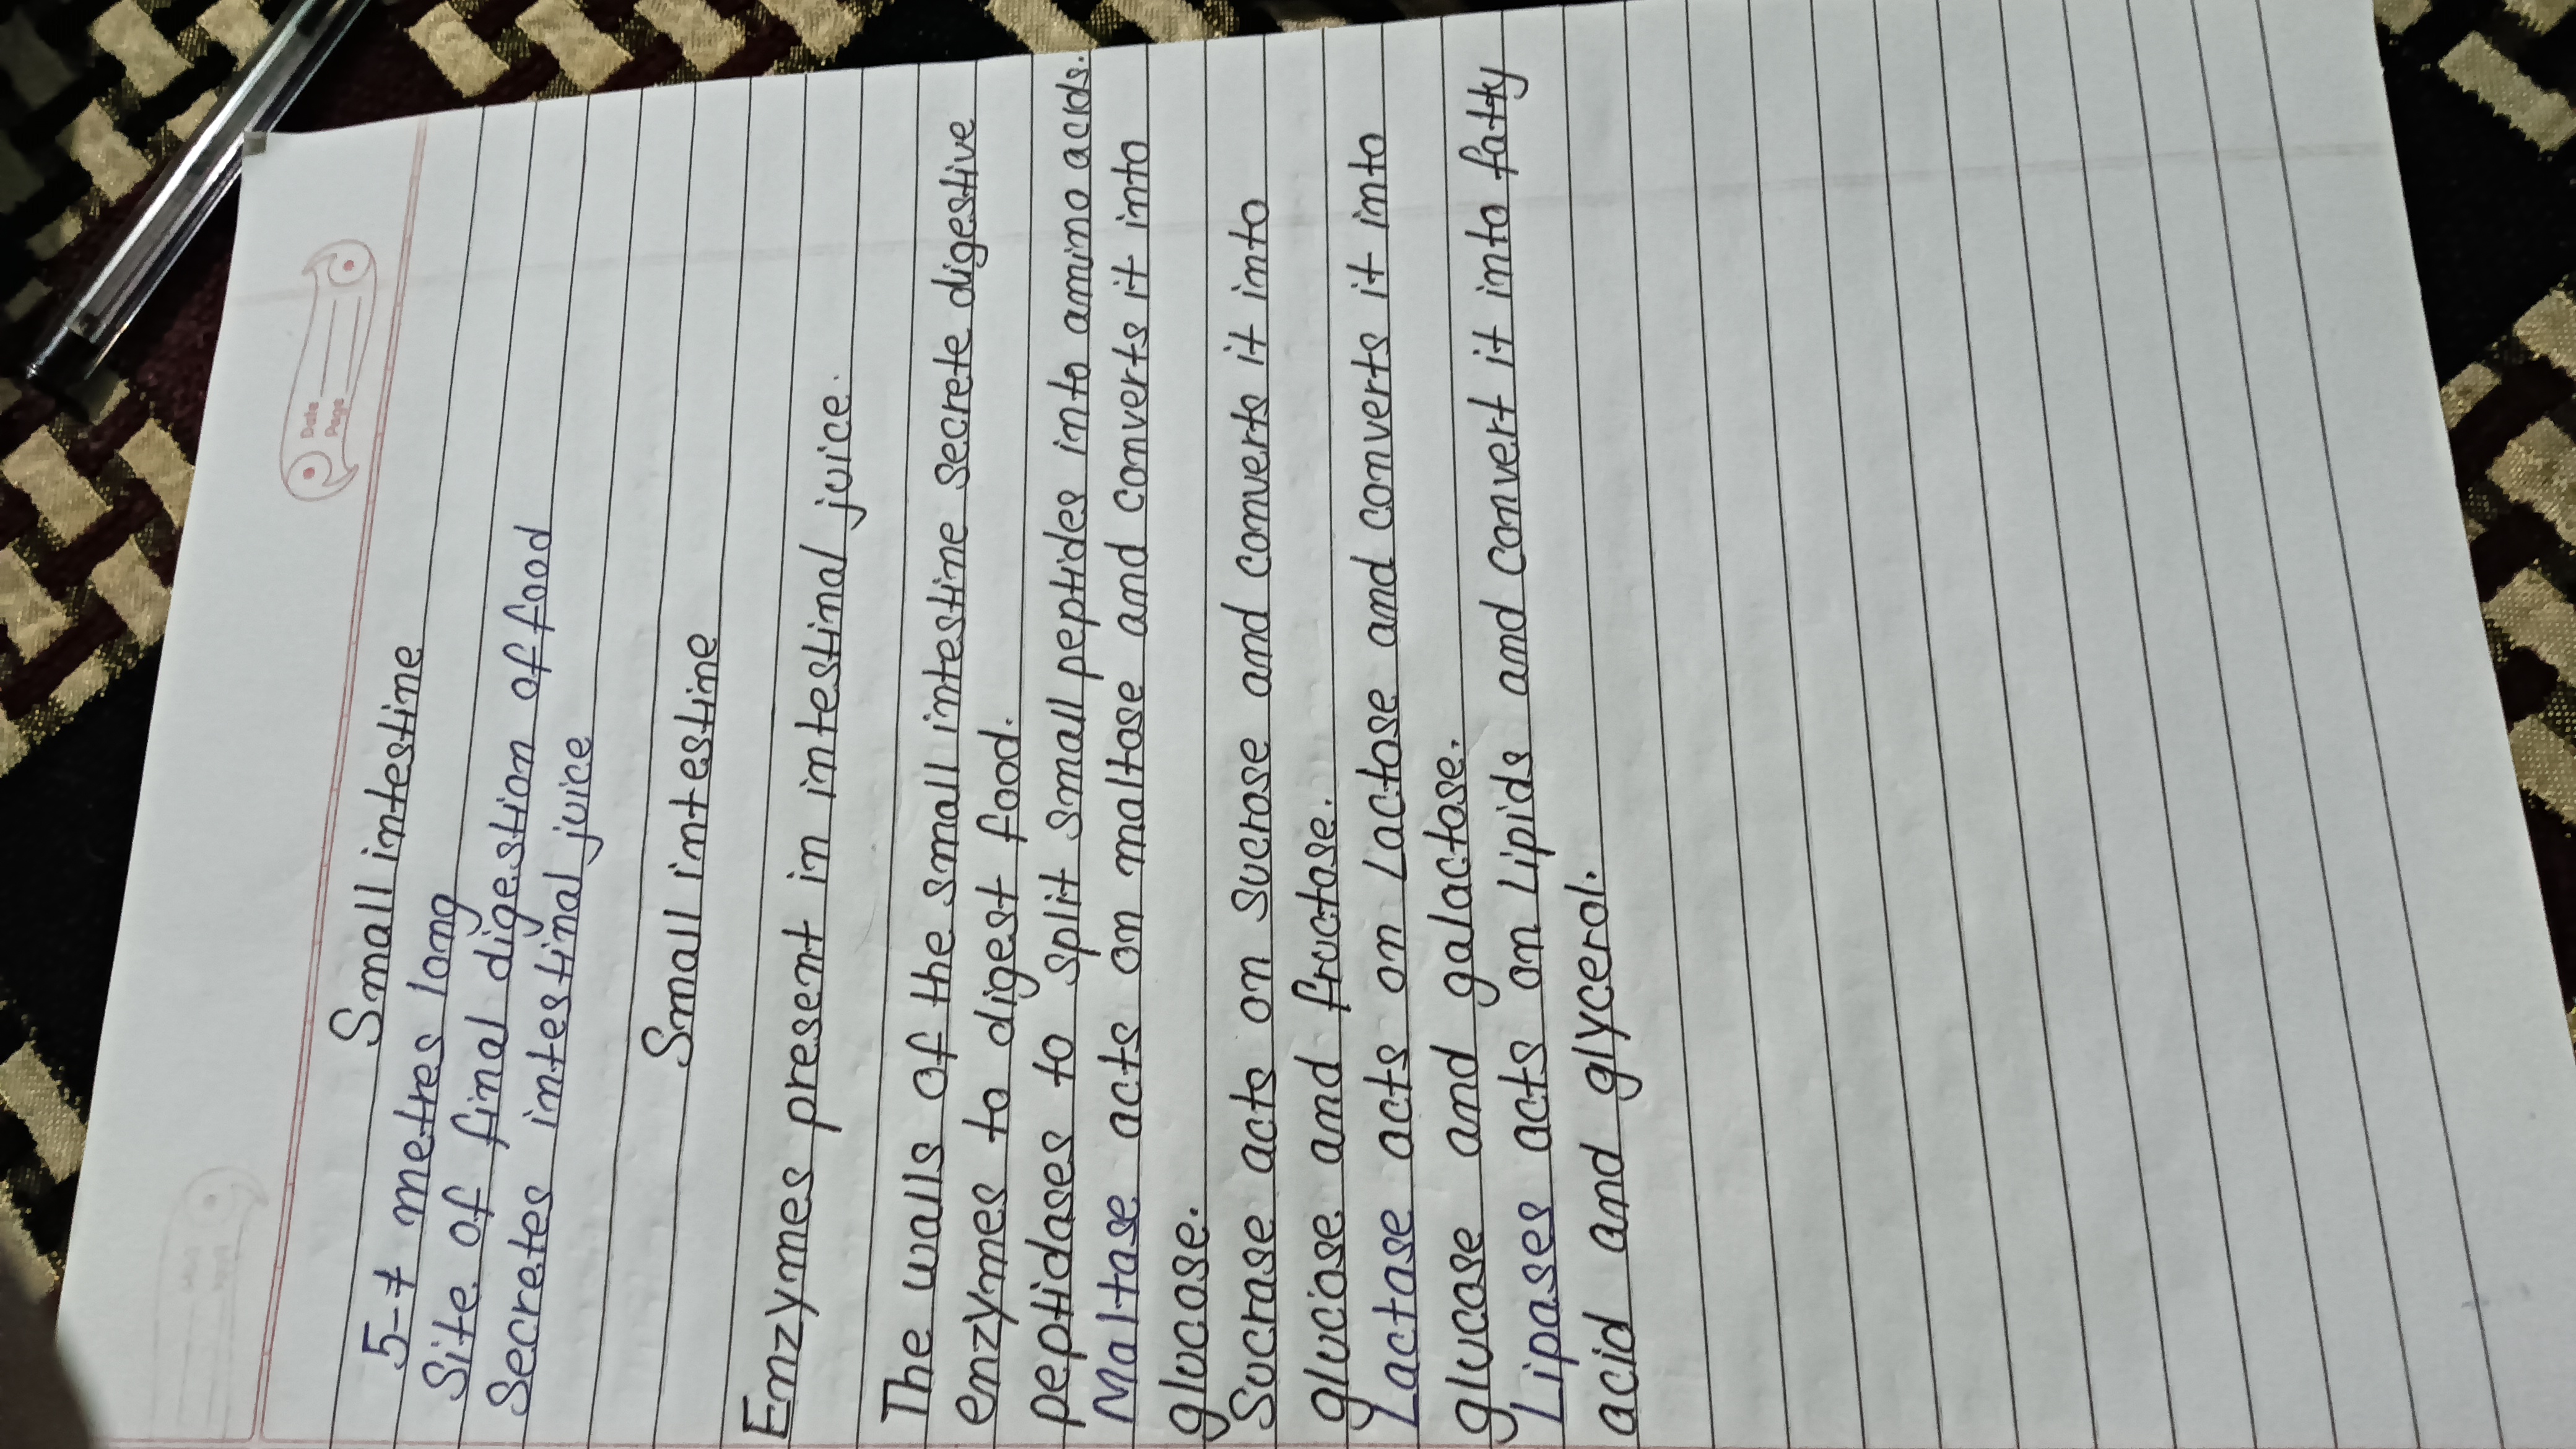 Date
Page
Small intestine
5-7 metres long
Site of final digestion of food
Secretes intestinal juice
Small intestine
Enzymes present in intestinal juice.
The walls of the small intestine secrete digestive
enzymes to digest food.
peptidases to split small peptides into amino acids.
Maltase acts on maltose and converts it into
glucose.
Sucrase acts on sucrose and converts it into
gluciose and fructose.
Lactase acts on Lactose and converts it into
glucose and galactose.
Lipases acts on Lipids and convert it into fatty
acid and glycerol.